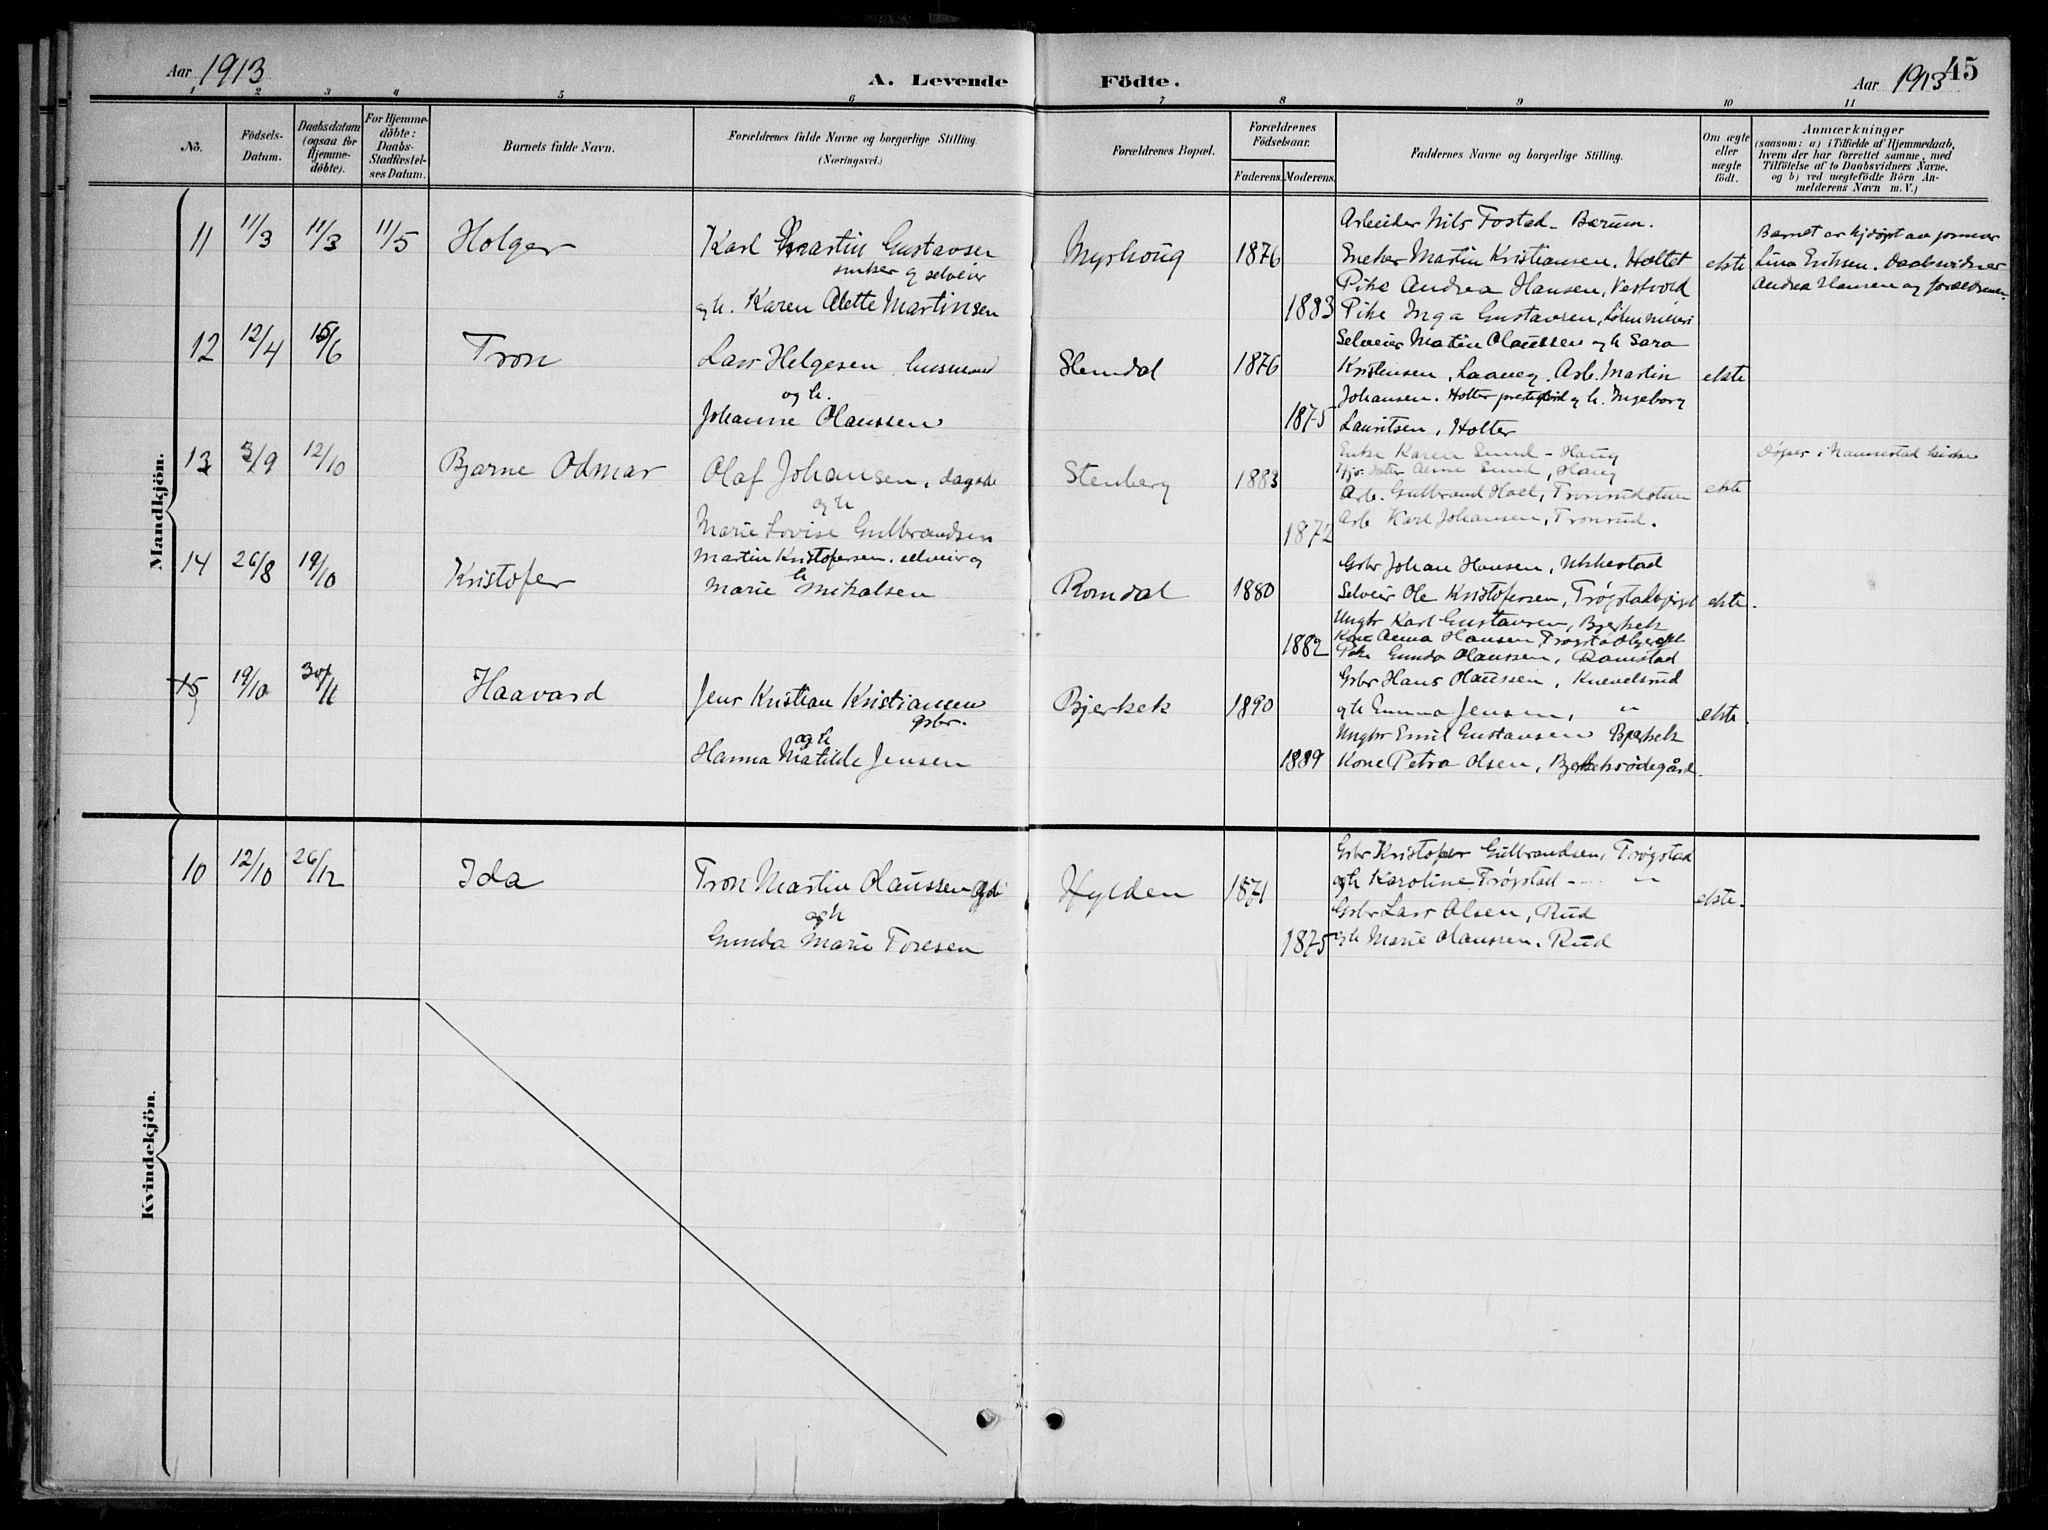 Aar 1913
A. Levende Födte.
Aar 1913
45
1 2 3 4 5 6 7 8 9 10 11
No.
Födsels-Datum.
Daabsdatum (ogsaa for Hjemmedöbte).
For Hjemmedöbte: Daabs-Stadfæstelses Datum.
Barnets fulde Navn.
Forældrenes fulde Navne og borgerlige Stilling.
(Næringsvei.)
Forældrenes Bopæl.
Forældrenes Födselsaar.
Faderens. Moderens.
Faddernes Navne og borgerlige Stilling.
Om ægte eller uægte födt.
Anmærkninger
(saasom: a) i Tilfælde af Hjemmedaab,
hvem der har forrettet samme, med
Tilföielse af to Daabsvidners Navne,
og b) ved uægtefödte Börn An-
melderens Navn m. V.)
Mandkjön.
11 11/3 11/3 11/5 Holger
Karl Martin Gustavsen
snekker og selveier
og h. Karen Alette Martinsen
Myrhoug 1876 1883
Arbeider Nils Fostad - Bærum.
Snekker Martin Kristiansen, Holtet
Pike Andrea Hansen, Vestvold
Pike Inga Gustavsen,
ekte
Barnet er hj.døpt av jormor
Lina Eriksen. Daabsvidner
Andrea Hansen og forældrene
12 12/4 15/6 Tron
Lars Helgesen husmand
og h.
Johanne Olaussen
Slemdal 1876 1875
Selveier Martin Olaussen og h Sara
Kristensen, Laaney. Arb. Martin
Johansen. Holter og h. Ingeborg
Lauritsen, Holter
ekte
13 3/9 12/10 Bjarne Odmar
Olaf Johansen,
og h
Marie Lovise Gulbrandsen
Stenberg 1883 1872
Enke Karen Sund - Haug
Anne Sund, Haug
Arb. Gulbrand Hoel, Tronrudstuen
Arb Karl Johansen, Tronrud.
ekte
Døpt i Nannestad kirke
14 26/8 19/10 Kristofer
Martin Kristofersen, selveier og
h
Marie Mikalsen
Romdal 1880 1882
Gbr Johan Hansen, Ukkestad
Selveier Ole Kristofersen, Trøgstad
Ungkr Karl Gustavsen, Bjerkek
Kone Anna Hansen,
Pike Gunda Olaussen, Ramstad
ekte.
15 19/10 30/11 Haavard
Jens Kristian Kristiansen
gbr.
og h
Hanna Matilde Jensen
Bjerkek 1890 1889
Gbr Hans Olaussen, Knevelsrud
og h Emma Jensen, "
Ungkr Emil Gustavsen Bjerkek
Kone Petra Olsen, Bjerkekødegård
ekte.
Kvindekjön.
10 12/10 26/12 Ida
Tron Martin Olaussen
og h
Gunda Marie Toresen
Hylden 1871 1875
Gbr Kristofer Gulbrandsen, Trøgstad
og h Karoline Trøgstad - "
Gbr Lars Olsen, Rud
og h Marie Olaussen. Rud
ekte.